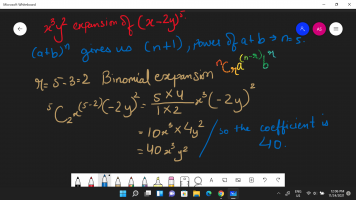 Microsoft Whiteboard
x³y² expansion of (x-2y)⁵.
(a+b)ⁿ gives us (n+1), power of a+b → n=5.
r=5-3=2 Binomial expansion ⁿCᵣa⁽ⁿ⁻ʳ⁾bʳ
⁵C₂x⁽⁵⁻²⁾(-2y)² = 5×4/1×2 x³(-2y)²
= 10x³×4y² / so the coefficient is
= 40x³y² 40.
ENG
12:06 PM
11/24/2021